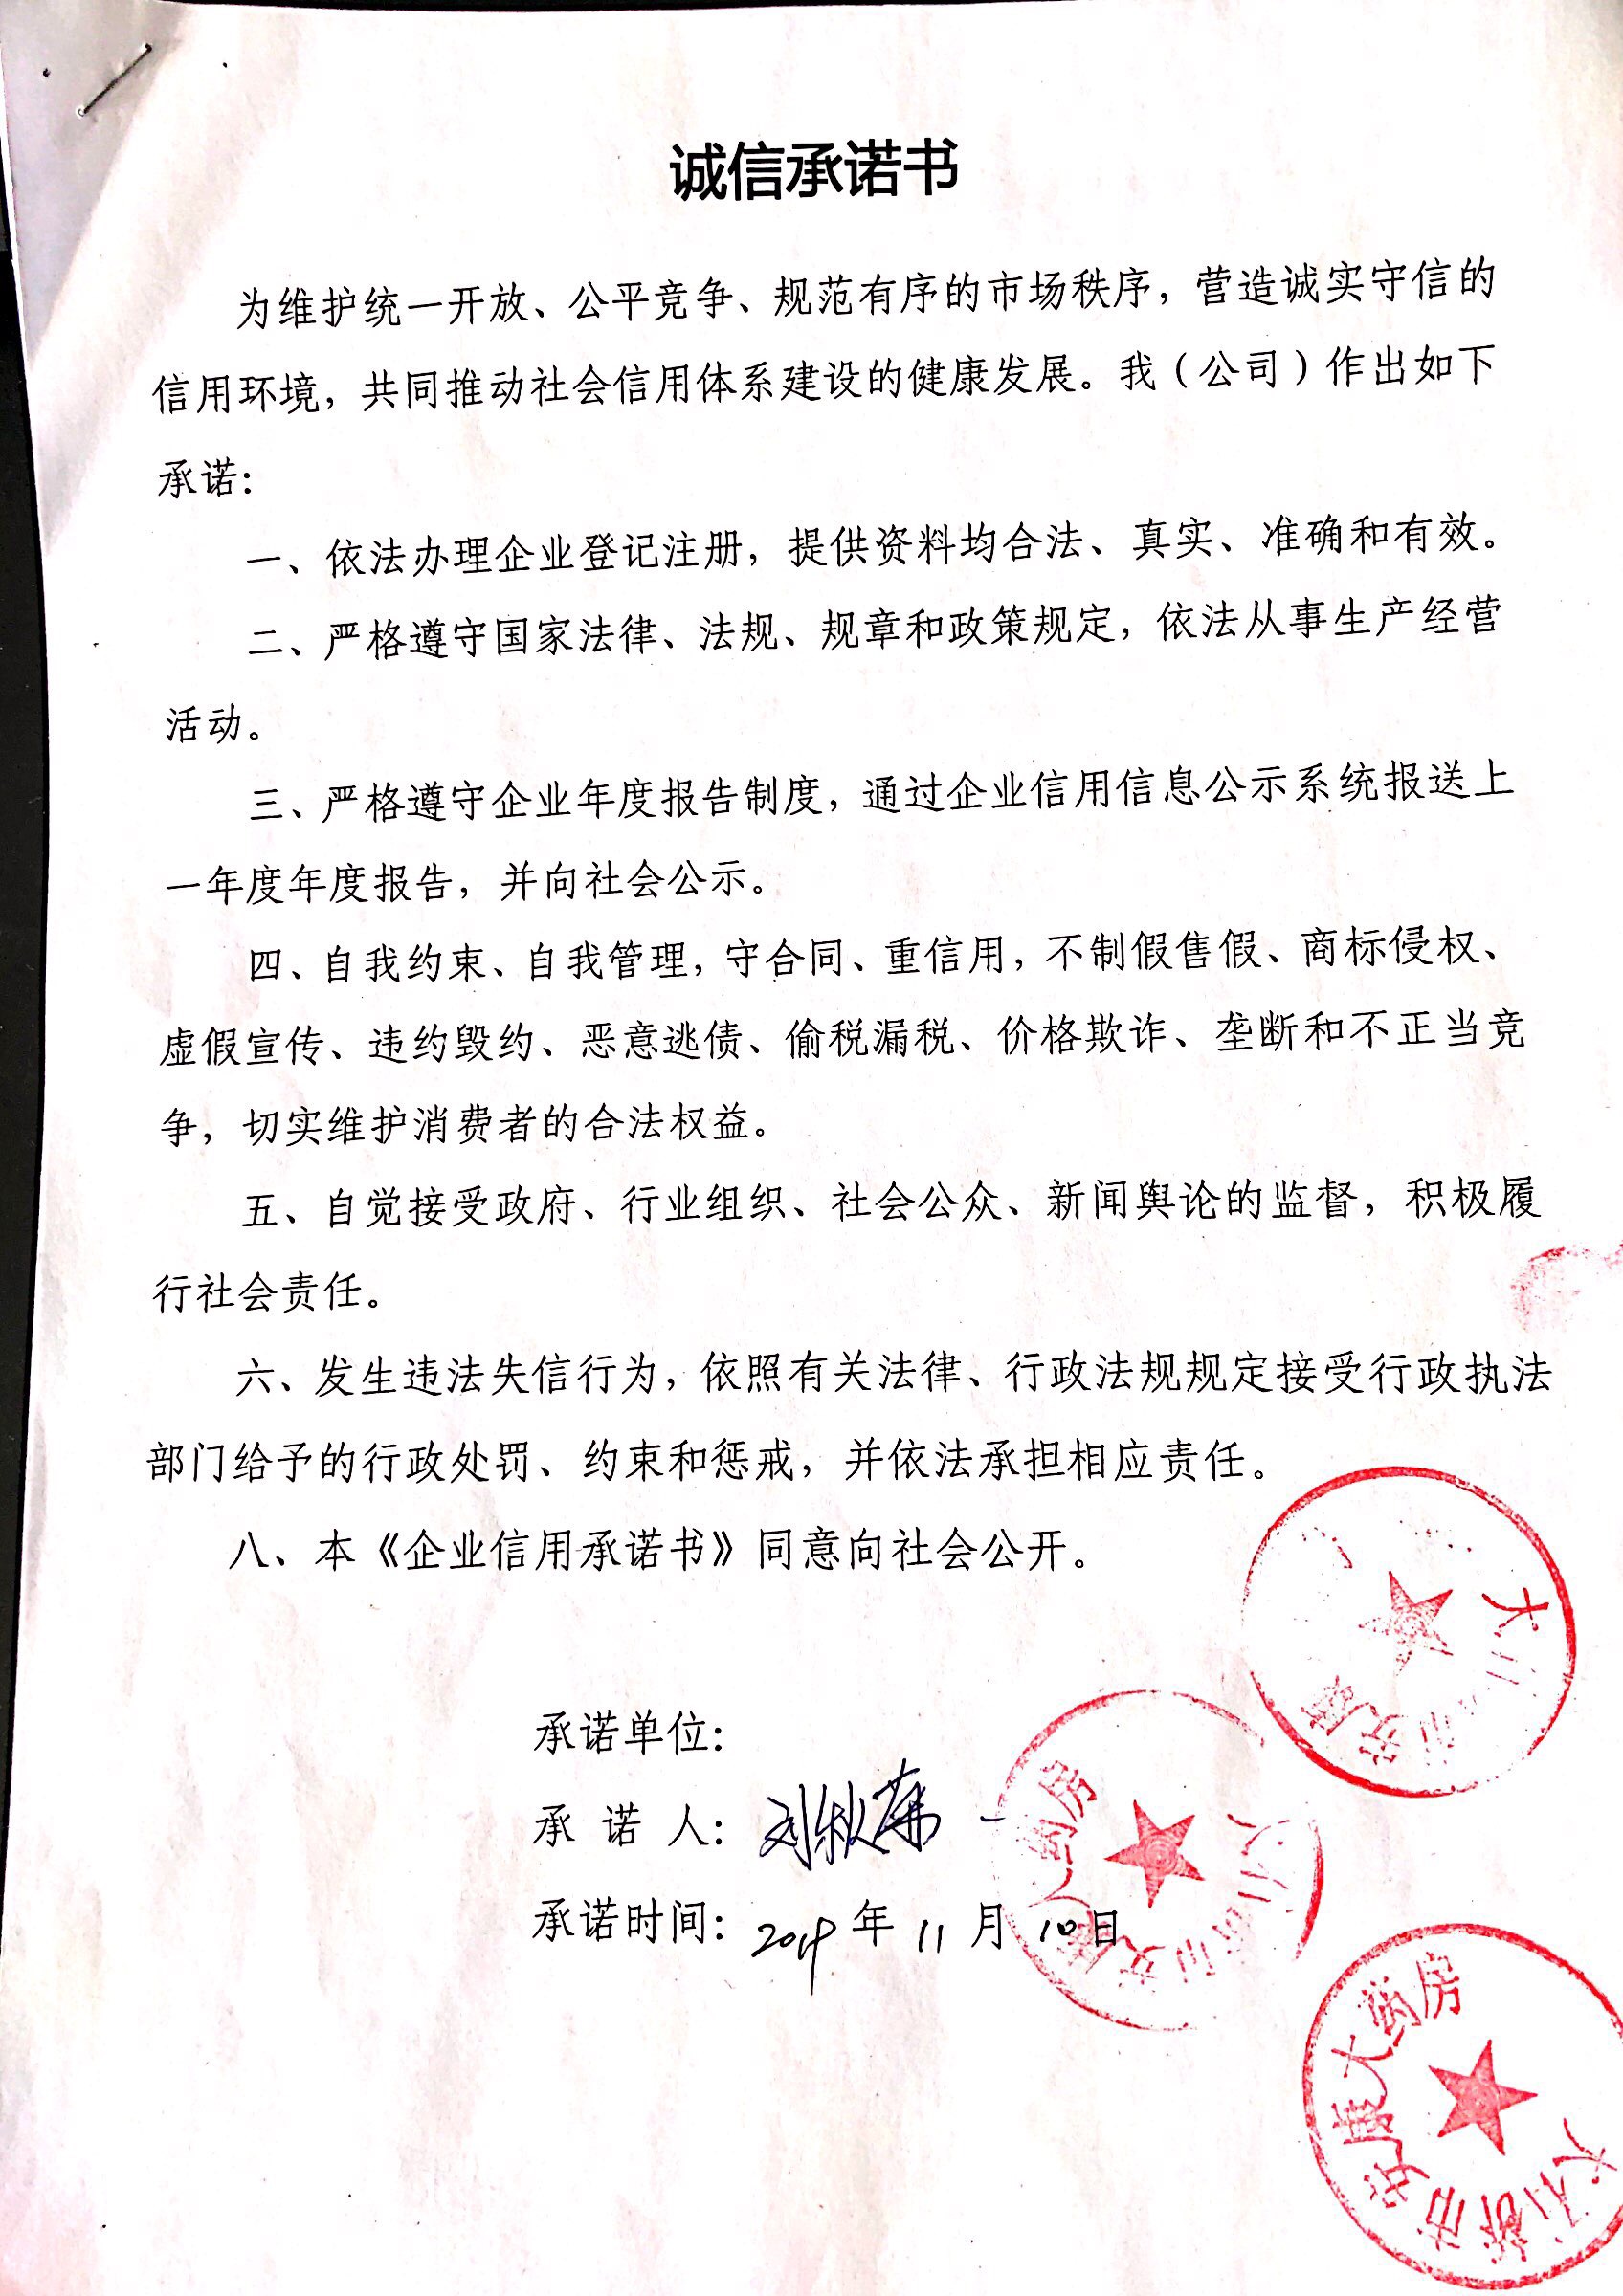 诚信承诺书
为维护统一开放、公平竞争、规范有序的市场秩序，营造诚实守信的
信用环境，共同推动社会信用体系建设的健康发展。我（公司）作出如下
承诺：
一、依法办理企业登记注册，提供资料均合法、真实、准确和有效。
二、严格遵守国家法律、法规、规章和政策规定，依法从事生产经营
活动。
三、严格遵守企业年度报告制度，通过企业信用信息公示系统报送上
一年度年度报告，并向社会公示。
四、自我约束、自我管理，守合同、重信用，不制假售假、商标侵权、
虚假宣传、违约毁约、恶意逃债、偷税漏税、价格欺诈、垄断和不正当竞
争，切实维护消费者的合法权益。
五、自觉接受政府、行业组织、社会公众、新闻舆论的监督，积极履
行社会责任。
六、发生违法失信行为，依照有关法律、行政法规规定接受行政执法
部门给予的行政处罚、约束和惩戒，并依法承担相应责任。
八、本《企业信用承诺书》同意向社会公开。
承诺单位：
承 诺 人：刘秋
承诺时间：2019 年 11 月 10日
大石桥市安康大药房